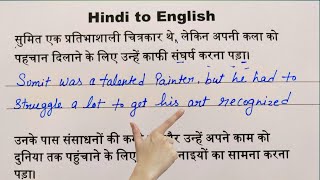 Hindi to English
सुमित एक प्रतिभाशाली चित्रकार थे, लेकिन अपनी कला को
पहचान दिलाने के लिए उन्हें काफी संघर्ष करना पड़ा।
Sumit was a talented Painter, but he had to
Struggle a lot to get his art recognized
उनके पास संसाधनों की और उन्हें अपने काम को
दुनिया तक पहुंचाने के लिए का सामना करना
पड़ा।